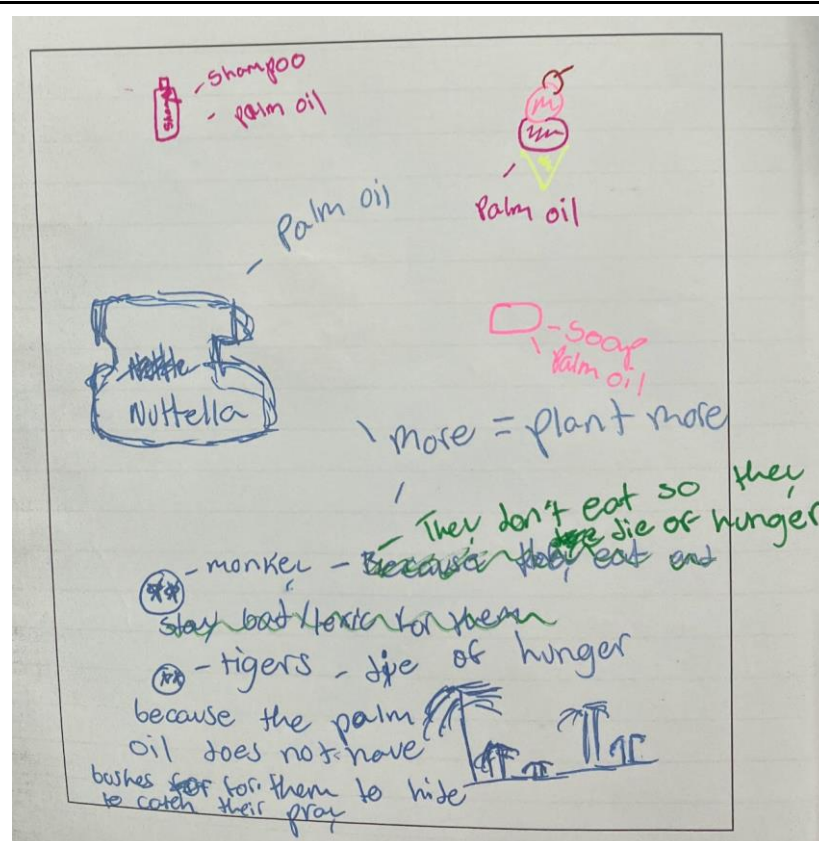 shampoo
palm oil
Palm oil
Palm oil
Nuttella
soap
Palm oil
more = plant more
They don't eat so they
die of hunger
monkey - Because they eat and
stay bad toxic for them
tigers - die of hunger
because the palm
oil does not have
bushes for for them to hide
to catch their pray